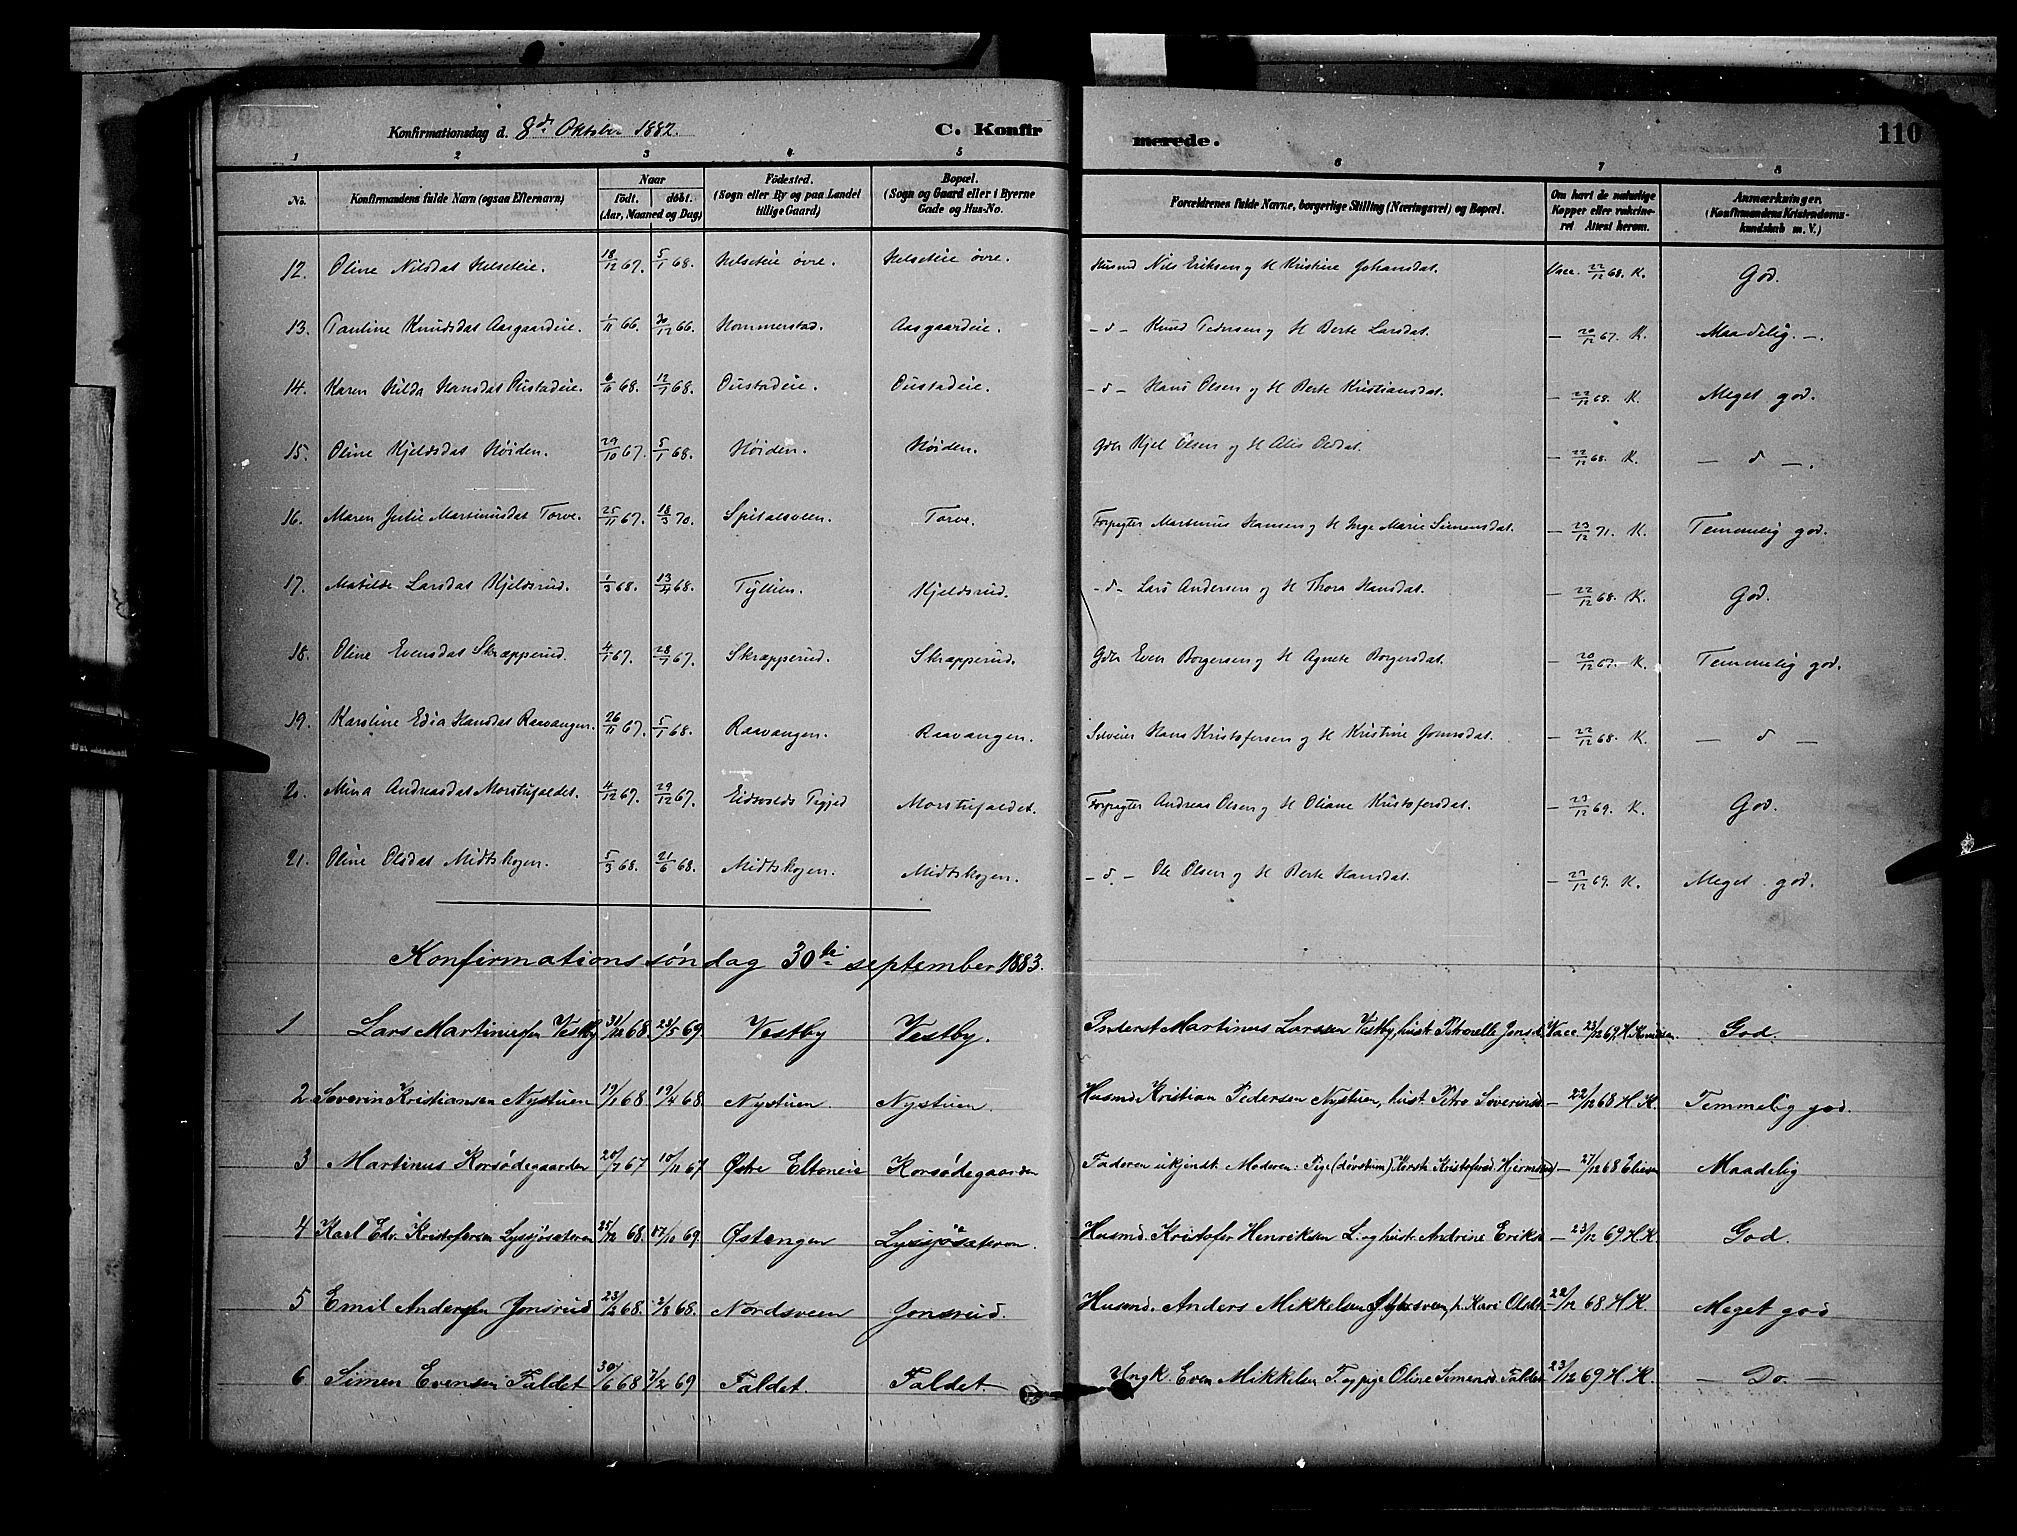 Konfirmationsdag d. 8de Oktober 1882. C. Konfir merede. 110
1 2 3 4 5 6 7 8
No. Konfirmandens fulde Navn (ogsaa Efternavn) Naar født. døbt. (Aar, Maaned og Dag) Fødested. (Sogn eller By og paa Landet tillige Gaard) Bopæl. (Sogn og Gaard eller i Byerne Gade og Hus-No. Forældrenes fulde Navne, borgerlige Stilling (Næringsvei) og Bopæl. Om havt de naturlige Kopper eller vakcineret Attest herom. Anmærkninger. (Konfirmandens Kristendomskundskab m. V.)
12. Oline Nilsdat Helseteie. 18/12 67. 5/1 68. Helseteie øvre. Helseteie øvre. Husmd Nils Eriksen og H Kristine Johansdat. Vacc. 22/12 68. K. God.
13. Pauline Knudsdat Aasgaardeie. 1/11 66. 30/12 66. Hommerstad. Aasgaardeie. - d - Knud Pedersen og H Berte Larsdat. — 20/12 67. K. Maadelig. —.
14. Karen Hilda Hansdat Oustadeie. 6/6 68. 12/7 68. Oustadeie. Oustadeie. - d - Hans Olsen og H Berte Kristiansdat. — 22/12 68. K. Meget god.
15. Oline Kjeldsdat Høiden. 29/10 67. 5/1 68. Høiden. Høiden. Gdbr Kjel Olsen og H Alis Olsdat. — 22/12 68. K. — d —.
16. Maren Julie Martinusdat Torve. 25/11 67. 18/3 70. Spitalsveen. Torve. Forpagter Martinus Hansen og H Inge Marie Simensdat. — 23/12 71. K. Temmelig god.
17. Matilde Larsdat Kjeldsrud. 1/3 68. 13/4 68. Tyllien. Kjeldsrud. - d - Lars Andersen og H Thora Hansdat. — 22/12 68. K. God.
18. Oline Evensdat Skrapperud. 4/1 67. 28/7 67. Skrapperud. Skrapperud. Gdbr Even Borgersen og H Agnete Borgersdat. — 20/12 67. K. Temmelig god.
19. Karoline Edia Hansdat Raavangen. 26/11 67. 5/1 68. Raavangen. Raavangen. Selveier Hans Kristofersen og H Kristine Jonsdat. — 22/12 68. K. — d —
20. Mina Andreasdat Morstufaldet. 4/12 67. 29/12 67. Eidsvolds Prgjld Morstufaldet. Forpagter Andreas Olsen og H Oliane Kristofersdat. — 23/12 69. K. God.
21. Oline Olsdat Midtskogen. 5/3 68. 21/6 68. Midtskogen. Midtskogen. - d. - Ole Olsen og H Berte Hansdat. — 23/12 69. K. Meget god.
Konfirmationssøndag 30te september 1883.
1 Lars Martinussen Vestby 31/12 68. 23/5 69. Vestby Vestby. Inderst Martinus Larssen Vestby, hust. Petronelle Jensd. Vacc. 23/12 69. H. Knudsen. God.
2 Severin Kristiansen Nystuen 19/1 68 19/4 68. Nystuen. Nystuen. Husmd Kristian Pedersen Nystuen, hust. Petra Severinsd. — 22/12 68 H. K. Temmelig god.
3 Martinus Korsødegaarden 20/7 67 10/11 67 Østre Eltoneie Korsødegaarden Faderen ukjendt. Moderen: Pige (døvstum) Kersti Kristofersd. Hjermstad — 27/12 68 Maadelig
4 Karl Edv. Kristofersen Lysjøsæteren 25/12 68. 17/10 69 Østengen Lysjøsæteren. Husmd. Kristofer Henriksen L. og hust. Andrine Eriksd. — 23/12 69 H K. God.
5 Emil Anderssen Jonsrud 23/2 68. 2/8 68. Nordsveen Jonsrud. Husmd. Anders Mikkelsen h. Kari Olsdt. 22/12 68 H. K. Meget god
6 Simen Evensen Faldet 30/6 68 7/2 69 Faldet. Faldet. Ungk. Even Mikkelsen F. og pige Oline Simensd. Faldet 23/12 69 H. K. — Do. —